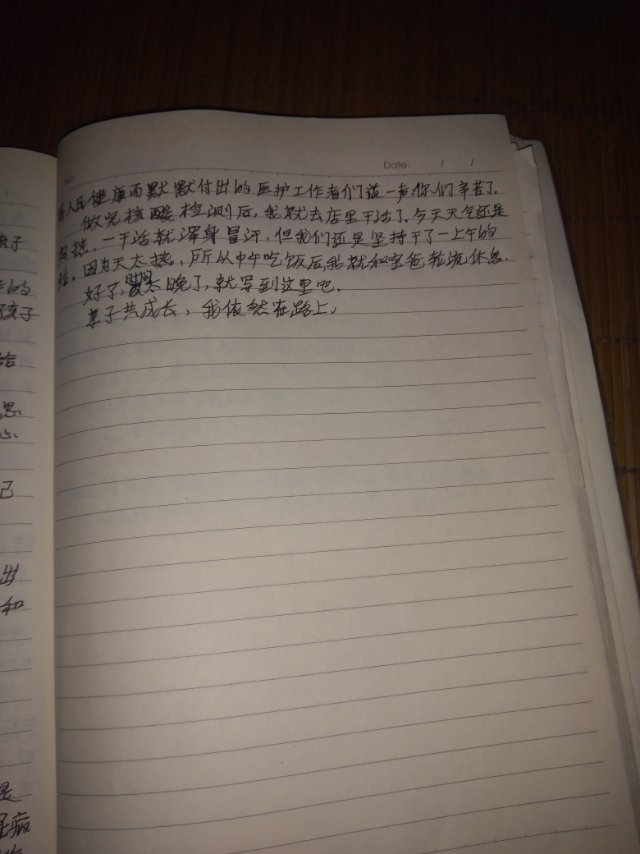 Date: / /
人民健康而默默付出的医护工作者们道一声你们辛苦了.
做完核酸检测后,我就去店里干活了,今天天气还是
热,一干活就浑身冒汗,但我们还是坚持干了一上午的
活,因为天太热,所以中午吃饭后我就和宝爸轮流休息.
好了,太晚了,就写到这里吧.
亲子共成长,我依然在路上.
子
的
孩子
给
思
心
己
出
和
是
病